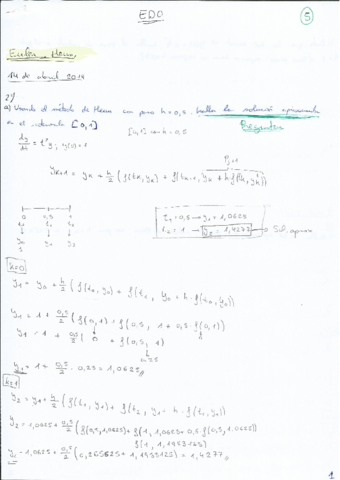 EDO
5
Euler - Heun
14 de abril 2014
2)
a) Usando el método de Heun con paso h = 0,5, hallar la solución aproximada
en el intervalo [0,1]
dy/dt = t²y, y(0) = 1
y_{k+1} = y_k + h/2 (f(t_k, y_k) + f(t_{k+1}, y_k + h f(t_k, y_k))
0 0,5 1
t_0 t_1 t_2
y_0 y_1 y_2
t_1 = 0,5 → y_1 = 1,0625
t_2 = 1 → y_2 = 1,4277 → Sol. aprox
k=0
y_1 = y_0 + h/2 (f(t_0, y_0) + f(t_1, y_0 + h · f(t_0, y_0))
y_1 = 1 + 0,5/2 (f(0,1) + f(0,5, 1 + 0,5 · f(0,1))
y_1 = 1 + 0,5/2 (0 + f(0,5, 1)
0,25
y_1 = 1 + 0,5/2 · 0,25 = 1,0625
k=1
y_2 = y_1 + h/2 (f(t_1, y_1) + f(t_2, y_1 + h · f(t_1, y_1))
y_2 = 1,0625 + 0,5/2 (f(0,5, 1,0625) + f(1, 1,0625 + 0,5 · f(0,5, 1,0625))
f(1, 1,1953125)
y_2 = 1,0625 + 0,5/2 (0,265625 + 1,1953125) = 1,4277
1